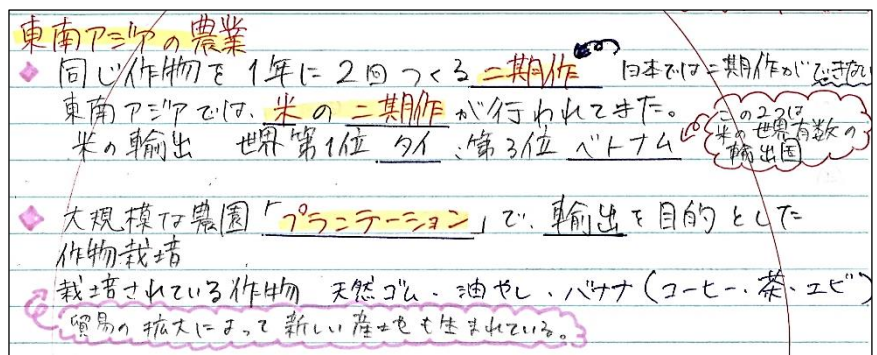 東南アジアの農業
◆ 同じ作物を1年に2回つくる 二期作 日本では二期作ができない
東南アジアでは、米の二期作が行われてきた。
米の輸出 世界第1位 タイ ;第3位 ベトナム
この2つは
米の世界有数の
輸出国
◆ 大規模な農園「プランテーション」で、輸出を目的とした
作物栽培
栽培されている作物 天然ゴム・油やし・バナナ(コーヒー・茶・エビ)
貿易の拡大によって新しい産地も生まれている。